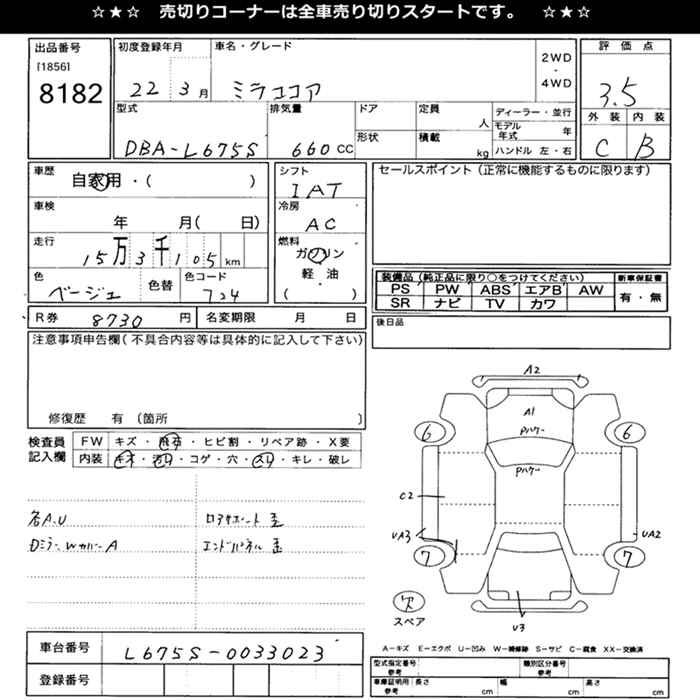 ☆★☆ 売切りコーナーは全車売り切りスタートです。 ☆★☆
出品番号
[1856]
8182
初度登録年月
22年3月
車名・グレード
ミラココア
2WD
・
4WD
評価点
3.5
外装 内装
C B
型式
DBA-L675S
排気量
660 CC
ドア
形状
定員
人
積載
kg
ディーラー・並行
モデル年式 年
ハンドル 左・右
車歴
自家用・( )
車検
年 月( 日)
走行
15万3千105 km
色
ベージュ
色替
色コード
T24
シフト
IAT
冷房
AC
燃料
ガソリン
軽・油
( )
セールスポイント(正常に機能するものに限ります)
装備品(純正品に限り○をつけてください)
PS PW ABS エアB AW
SR ナビ TV カワ
新車保証書
有・無
R券 8730 円
名変期限 月 日
後日品
注意事項申告欄(不具合内容等は具体的に記入して下さい)
修復歴 有(箇所 )
検査員記入欄
FW キズ・飛石・ヒビ割・リペア跡・X要
内装 キズ・汚れ・コゲ・穴・スレ・キレ・破レ
各A.U
Dミラー、WカバーA
ロアサポート歪
エンドパネル歪
A2
A1
Pハゲー
Pハゲー
6
6
C2
UA3
UA2
7
7
U3
欠
スペア
A-キズ E-エクボ U-凹み W-補修跡 S-サビ C-腐食 XX-交換済
車台番号
L675S-0033023
登録番号
型式指定番号
参考
類別区分番号
参考
車庫証明用
参考
長さ cm
幅 cm
高さ cm